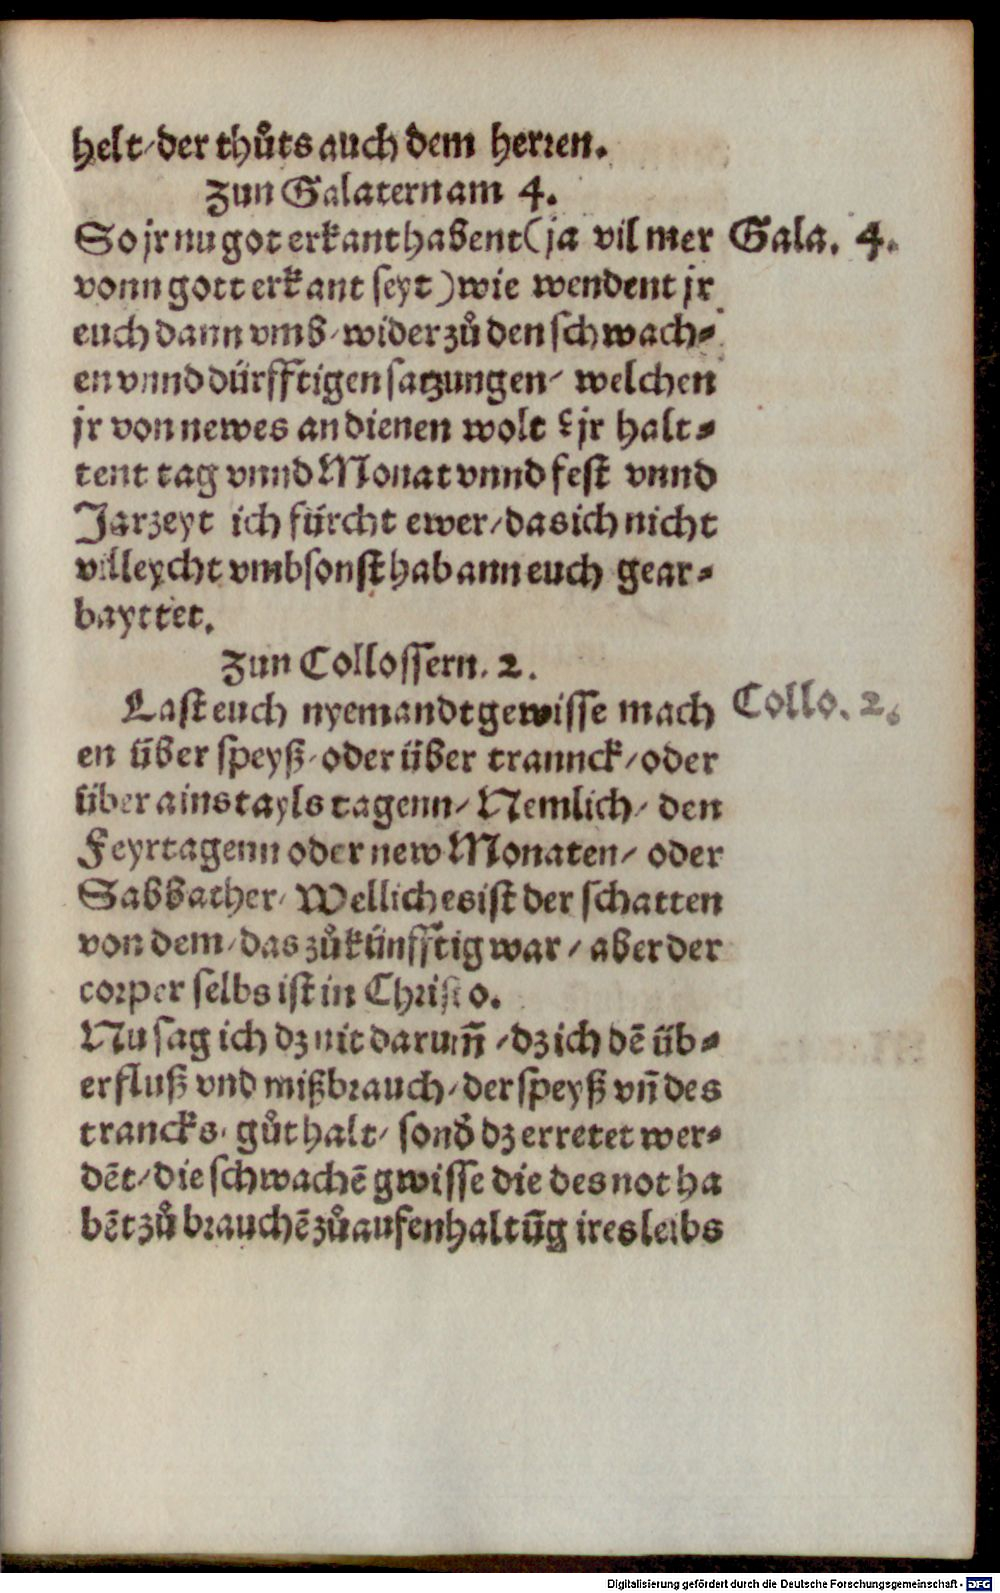 helt/ der thůts auch dem herren.
Zun Galatern am 4.
So jr nu got erkant habent (ja vil mer
Gala. 4.
vonn gott erkant seyt) wie wendent jr
euch dann vmb/ wider zů den schwach⸗
en vnnd dürfftigen satzungen/ welchen
jr von newes an dienen wolt? jr halt⸗
tent tag vnnd Monat vnnd fest vnnd
Jarzeyt ich fürcht ewer/ das ich nicht
villeycht vmbsonst hab ann euch gear⸗
bayttet.
Zun Collossern. 2.
Last euch nyemandt gewisse mach
Collo. 2.
en über speyß/ oder über trannck/ oder
über ains tayls tagenn/ Nemlich/ den
Feyrtagenn oder new Monaten/ oder
Sabbather/ Wellich es ist der schatten
von dem/ das zůkünfftig war/ aber der
corper selbs ist in Christo.
Nu sag ich dz nit darum̄/ dz ich dē üb⸗
erfluß vnd mißbrauch/ der speyß vn̄ des
trancks/ gůt halt/ sond̕ dz erretet wer⸗
dēt/ die schwachē gwisse die des not ha
bēt zů brauchē zů aufenhaltūg ires leibs
Digitalisierung gefördert durch die Deutsche Forschungsgemeinschaft - DFG